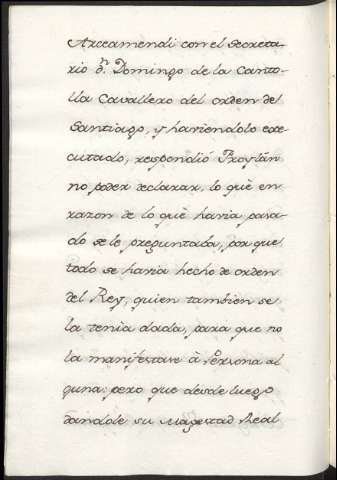 Arceamendi con el Secreta-
rio Dn. Domingo de la Canto-
lla Cavallero del orden del
Santiago, y haviendolo exe-
cutado, respondió Froylán
no poder declarar, lo què en
razon de lo què havia pasa-
do se le preguntaba, por que
todo se havia hecho de orden
del Rey, quien tambien se
la tenia dada, para que no
la manifestase à Persona al
guna: pero que desde luego
dandole su Magestad Real